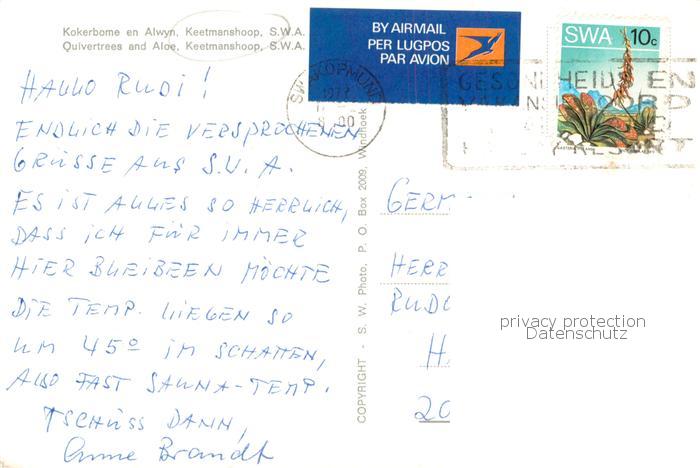 Kokerbome en Alwyn, Keetmanshoop, S.W.A.
Quivertrees and Aloe, Keetmanshoop, S.W.A.
BY AIRMAIL
PER LUGPOS
PAR AVION
SWA 10c
SWAKOPMUND
HALLO RUDI!
ENDLICH DIE VERSPROCHENEN
GRÜSSE AUS S.W.A.
ES IST ALLES SO HERRLICH,
DASS ICH FÜR IMMER
HIER BLEIBEEN MÖCHTE
DIE TEMP. LIEGEN SO
UM 45° IM SCHATTEN,
ALSO FAST SAUNA-TEMP.
TSCHÜSS DANN,
Anne Brandt
COPYRIGHT - S. W. Photo, P. O. Box 2009, Windhoek
GERM
HERR
RUDO
H
20
privacy protection
Datenschutz